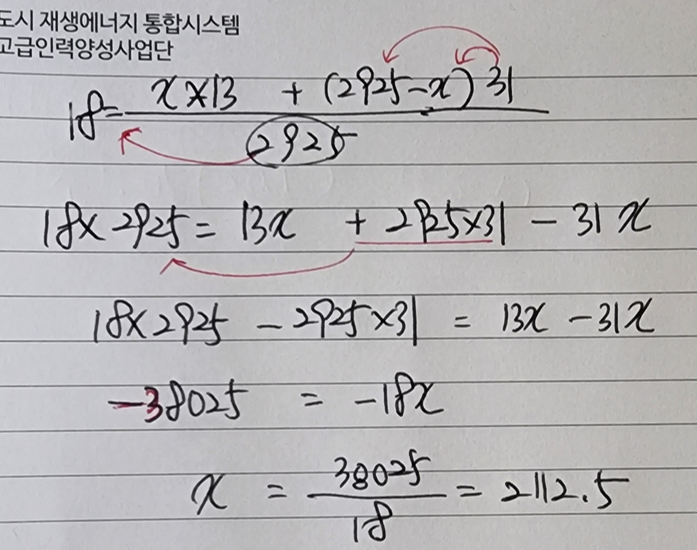 도시 재생에너지 통합시스템
고급인력양성사업단
18 = \frac{x × 13 + (2925 - x) 31}{2925}
18 × 2925 = 13x + 2925 × 31 - 31x
18 × 2925 - 2925 × 31 = 13x - 31x
-38025 = -18x
x = \frac{38025}{18} = 2112.5